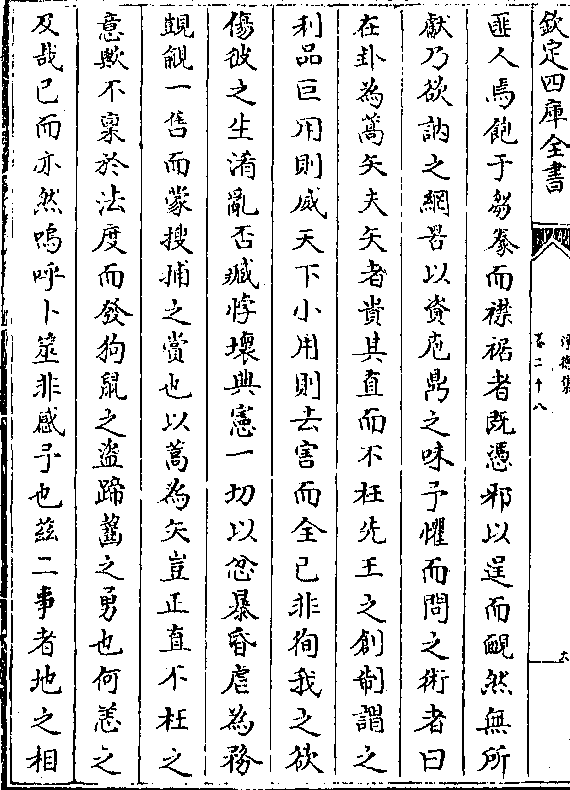 欽定四庫全書
卷二十八
匪人馬飽于芻豢而襟裾者既憑邪以逞而靦然無所
獻乃欲訥之網罟以資庖鼎之味予懼而問之術者曰
在卦為蒿矢夫矢者貴其直而不枉先王之創制謂之
利品巨用則威天下小用則去害而全已非徇我之欲
傷彼之生淆亂否臧悖壞典憲一切以忿暴昏虐為務
覬覦一售而蒙搜捕之賞也以蒿為矢豈正直不枉之
意歟不稟於法度而發狗鼠之盜蹄齧之勇也何恙之
及哉已而亦然嗚呼卜筮非惑予也兹二事者地之相